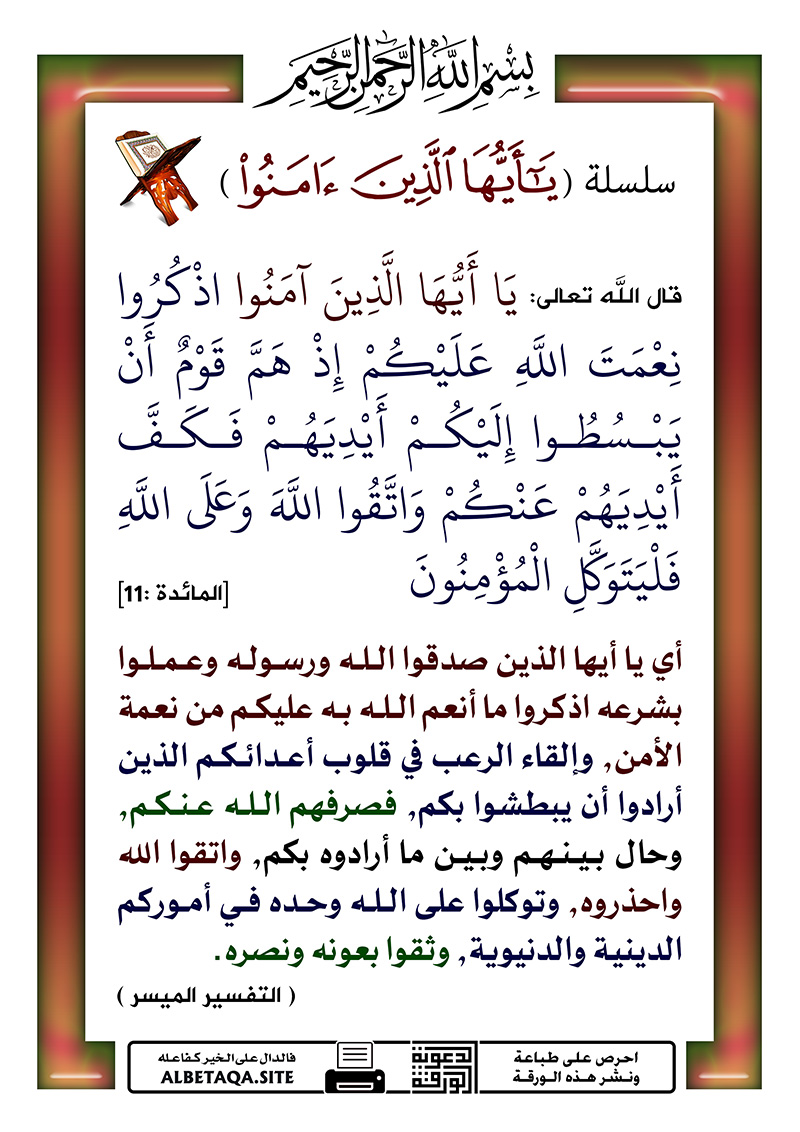 بِسْمِ اللَّهِ الرَّحْمَٰنِ الرَّحِيمِ
سلسلة ( يَـٰٓأَيُّهَا ٱلَّذِينَ ءَامَنُوا۟ )
قال اللَّه تعالى: يَا أَيُّهَا الَّذِينَ آمَنُوا اذْكُرُوا
نِعْمَتَ اللَّهِ عَلَيْكُمْ إِذْ هَمَّ قَوْمٌ أَنْ
يَبْسُطُوا إِلَيْكُمْ أَيْدِيَهُمْ فَكَفَّ
أَيْدِيَهُمْ عَنْكُمْ وَاتَّقُوا اللَّهَ وَعَلَى اللَّهِ
فَلْيَتَوَكَّلِ الْمُؤْمِنُونَ
[المائدة :11]
أي يا أيها الذين صدقوا الله ورسوله وعملوا
بشرعه اذكروا ما أنعم الله به عليكم من نعمة
الأمن, وإلقاء الرعب في قلوب أعدائكم الذين
أرادوا أن يبطشوا بكم, فصرفهم الله عنكم,
وحال بينهم وبين ما أرادوه بكم, واتقوا الله
واحذروه, وتوكلوا على الله وحده في أموركم
الدينية والدنيوية, وثقوا بعونه ونصره.
( التفسير الميسر )
احرص على طباعة
ونشر هذه الورقة
الدعوية
الورقة
فالدال على الخير كفاعله
ALBETAQA.SITE